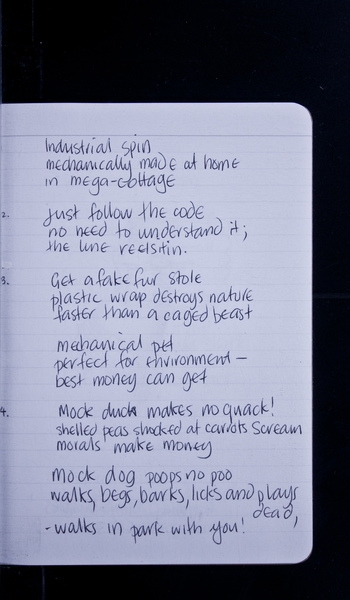 Industrial spin
mechanically made at home
in mega-cottage
2. Just follow the code
no need to understand it;
the line reels tin.
3. Get a fake fur stole
plastic wrap destroys nature
faster than a caged beast
mechanical pet
perfect for environment—
best money can get
4. Mock duck makes no quack!
shelled peas shocked at carrots scream
morals make money
Mock dog poops no poo
walks, begs, barks, licks and plays
dead,
- walks in park with you!